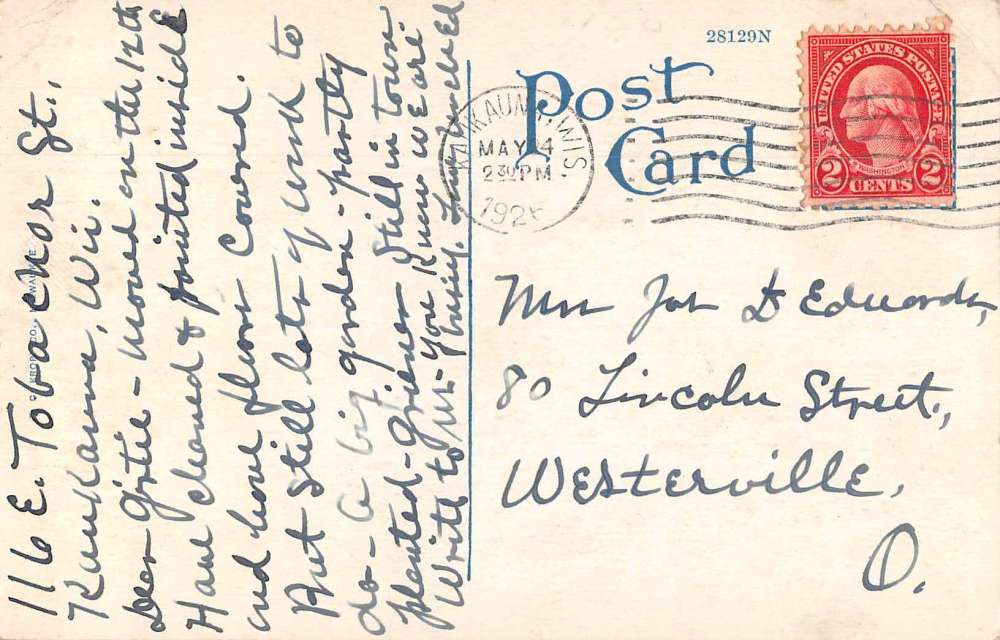 116 E. Tobacnor St.,
Kaukauna, Wis.
Dear Girtie - Moved on the 12th
Have cleaned & painted inside
and have floor Covered.
But still lots of work to
do - A big garden - partly
planted - still in town
Write to us - You Know we are
busy. Love
28129N
Post
Card
KAUKAUNA, WIS.
MAY 4
230 PM
192
UNITED STATES POSTAGE
WASHINGTON
2 CENTS 2
Mrs Joh D Edwards,
80 Lincoln Street,
Westerville,
O.